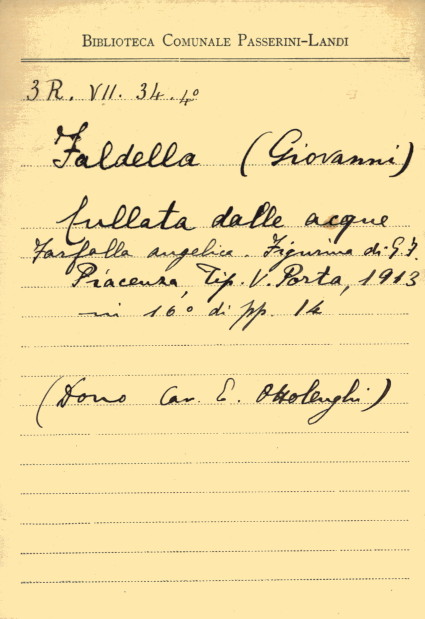 BIBLIOTECA COMUNALE PASSERINI-LANDI
3R. VII. 34. 4º
Faldella (Giovanni)
Cullata dalle acque
Farfalla angelica. Figurina di G. F.
Piacenza, Tip. V. Porta, 1913
in 16º di pp. 14
(Dono Cav. E. Ottolenghi)